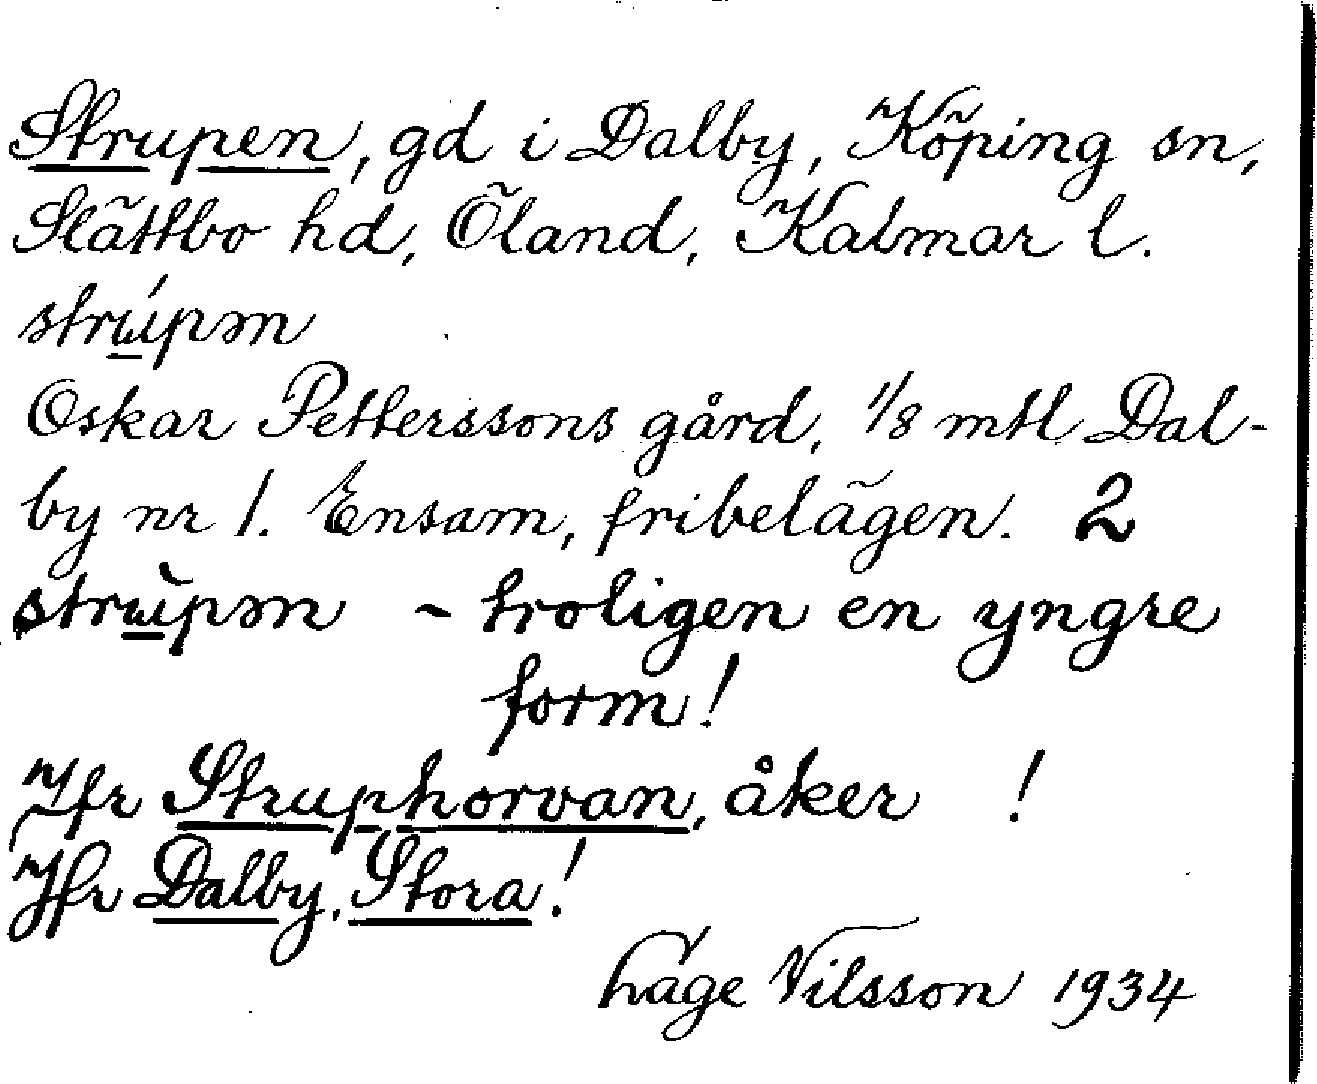 Strupen, gd i Dalby, Köping sn,
Slättbo hd, Öland, Kalmar l.
strúpən
Oskar Petterssons gård, 1/8 mtl Dal-
by nr 1. Ensam, fribelägen. 2
strùpən ~ troligen en yngre
form!
Jfr Struphorvan, åker !
Jfr Dalby, Stora!
Håge Nilsson 1934